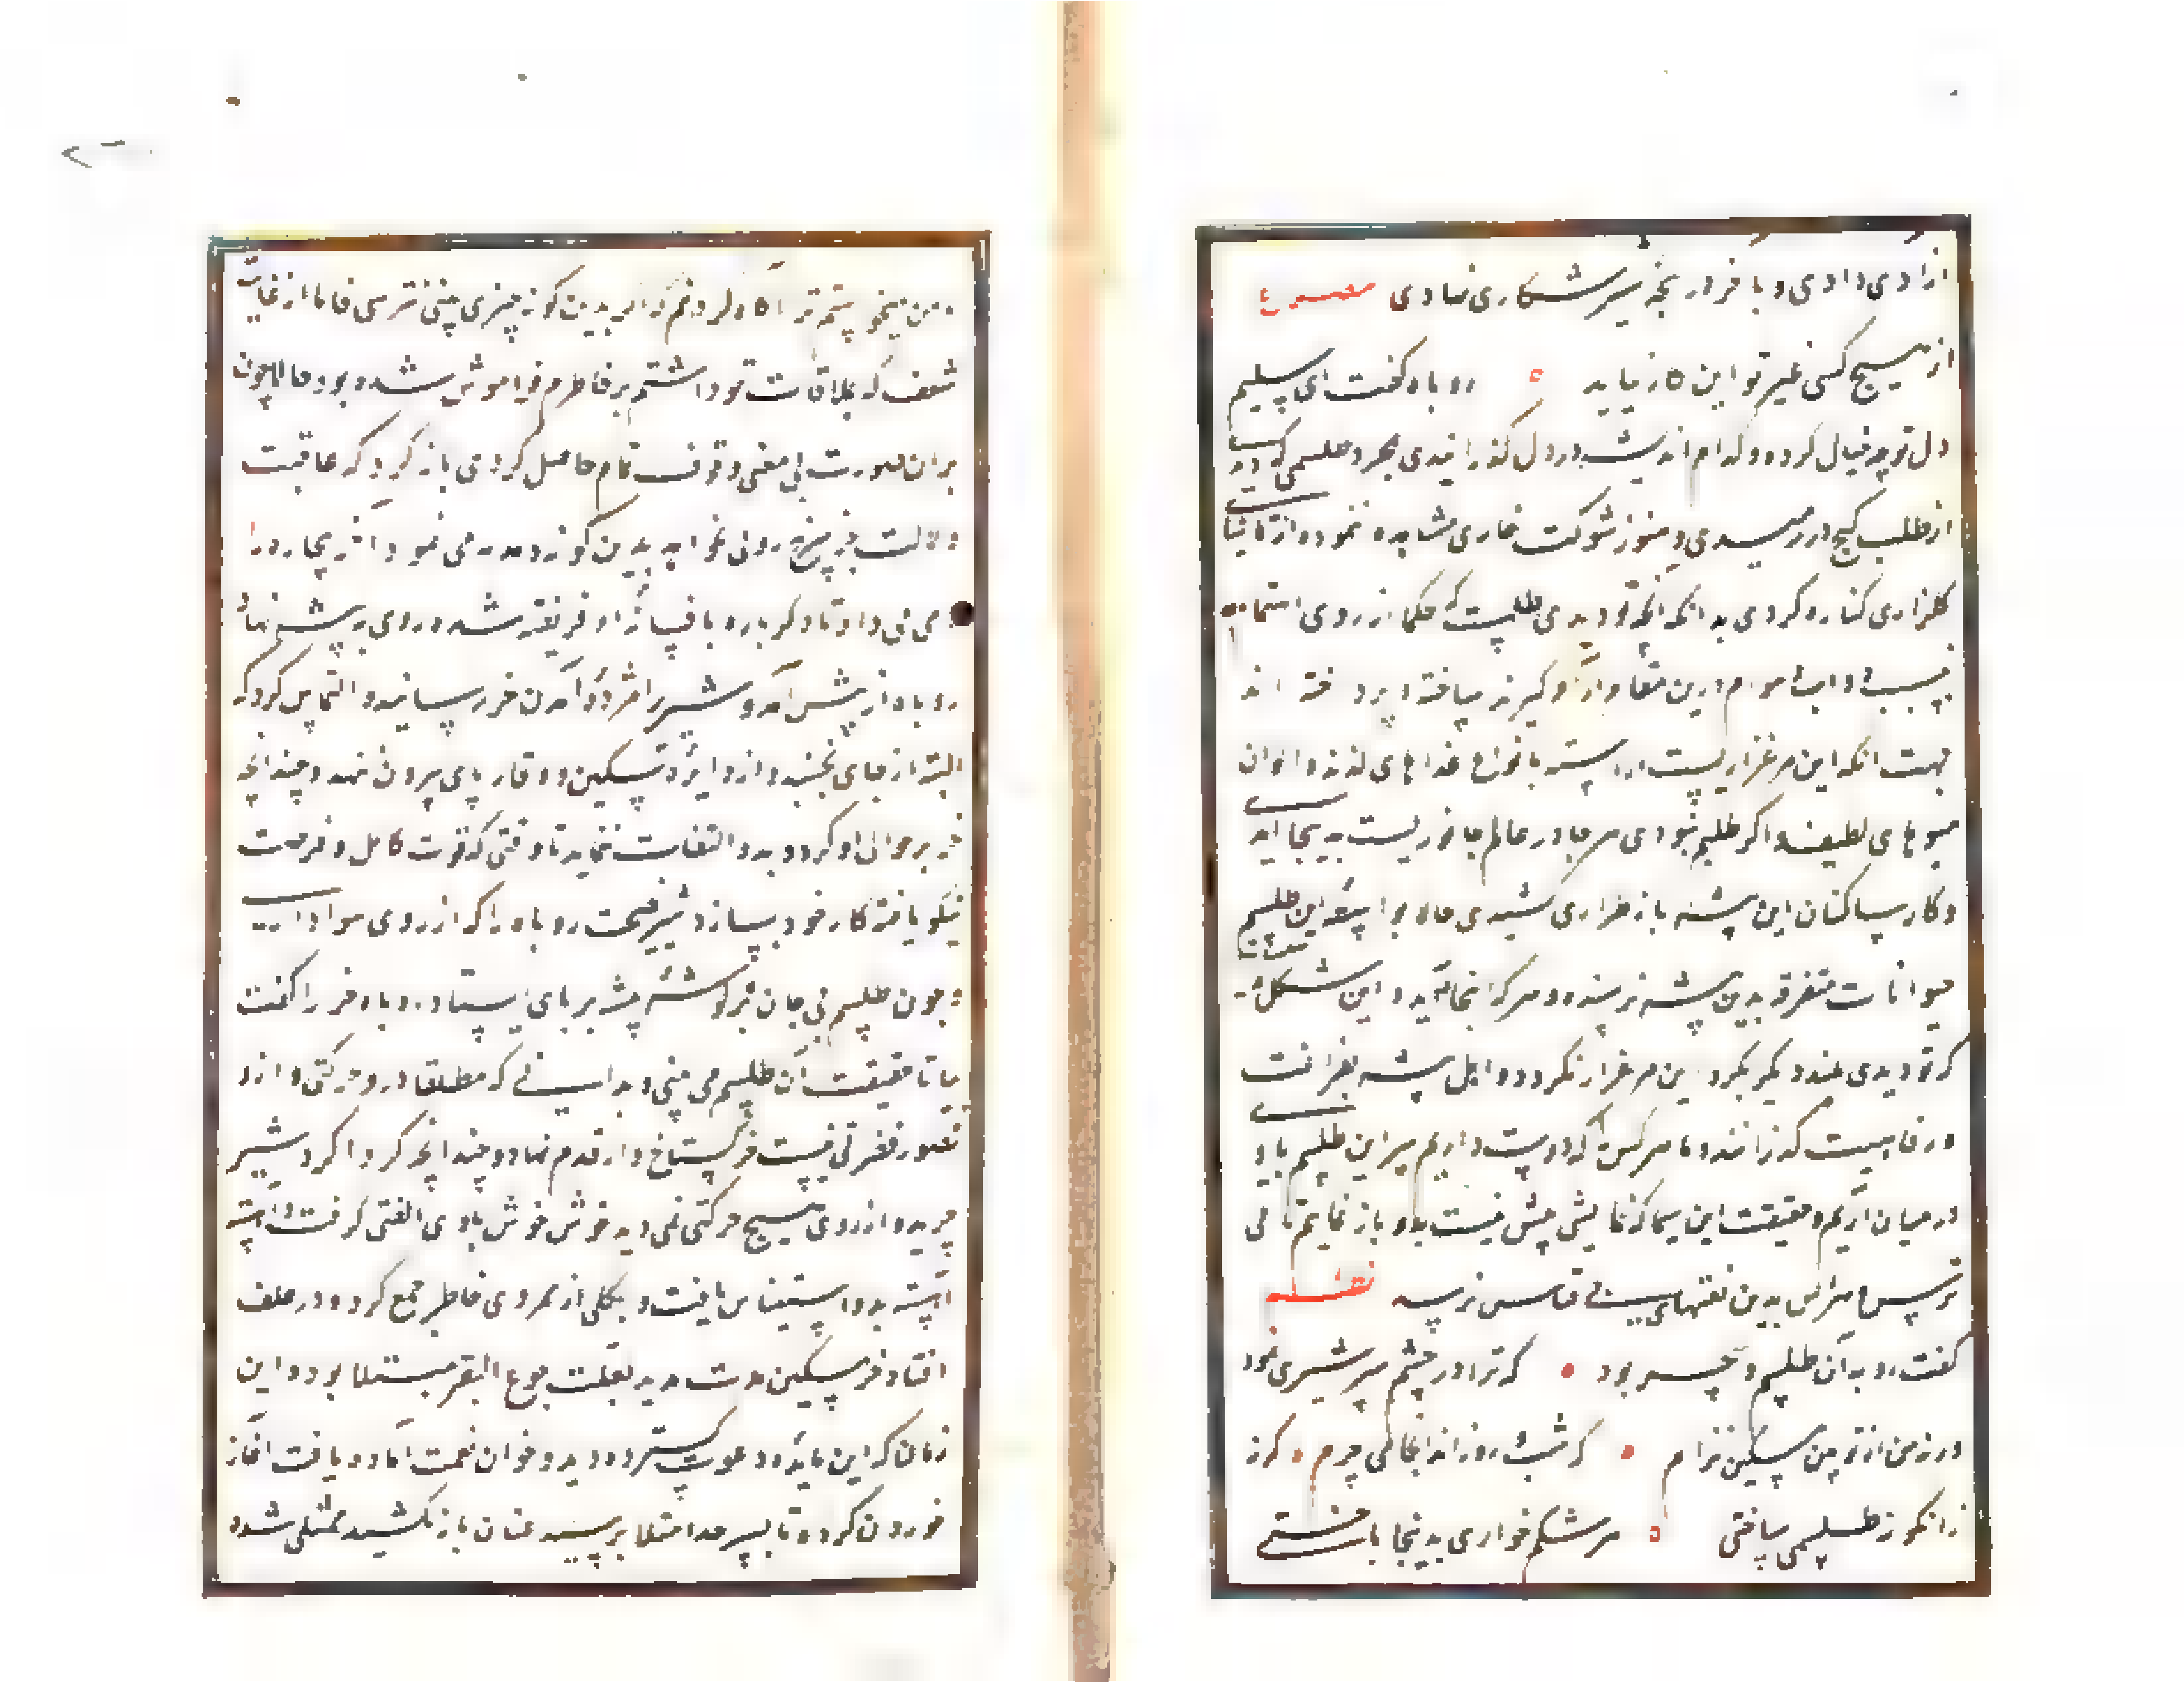 ازادی دادی و باخر در پنجه شیر شکاری نهادی مصرع
از هیچ کسی غیر تو این کار نیاید روباه گفت ای سلیم
دل تو چه خیال کرده و کدام اندیشه در دل گذرانیدی بمجرد طلسمی که دیدی
از طلب گنج در رمیدی و هنوز شوکت خاری مشاهده ننموده از تماشای
گلزاری کناره کردی بدانکه آنچه تو دیدی طلسمیست که حکما از روی
بسبب این مقام درین ساخته و پرداخته اند
جهت انکه این مرغزاریست اراسته بانواع غذاهای لذیذ و الوان
میوهای لطیف و اگر طلسم نبودی هر جا در عالم جانوریست بدینجا آید
و کار ساکنان این بیشه باضطراری کشیدی حالا بواسطه این طلسم
حیوانات متفرقه بدین بیشه نرسند و هر که اینجا آید و این شکل
که تو دیدی بیند دیگر بگرد این مرغزار نگردد و اهل بیشه بفراغت
و رفاهیت گذرانند و ما هر کس را که دوست داریم سر این طلسم با او
در میان آریم و حقیقت این سیما که نمایشی بیش نیست بدو باز نماییم تا بی
ترس و هراس بدین نعمتهای بی قیاس برسد نظم
گفت روبه آن طلسم و سحر بود که ترا در چشم سر شیری نمود
ورنه من از تو بتن مسکین ترام که شب و روز اندر اینجا می چرم
زانگونه طلسمی ساختی هر شکم خواری بدینجا تاختی
من میخواستم ترا آگاه گردانم که اگر بدین گونه چیزی بینی نترسی فاما از غایت
شعف که بملاقات تو داشتم بر خاطرم فراموش شده بود حالا چون
بران صورت بی معنی وقوف تمام حاصل کردی باز گرد که عاقبت
دلالت جز سرخ رویی نخواهد بدین گونه دمدمه می نمود آخر بیچاره را
دم می داد تا دگرباره بافسانه او فریفته شده روی به بیشه نهاد
روباه از پیش آمد و شیر را مژده آمدن خر رسانید و التماس کرد که
البته از جای نجنبد و از دایره تسکین و وقار پای بیرون ننهد و چندانچه
خر بر حوالی او گردد بدو التفات ننماید تا وقتی که قوت کامل و فرصت
نیکو یافته کار خود بسازد شیر نصیحت روباه را که از روی هواداری
چون طلسم بی جان بر گوشه بیشه بر پای ایستاد روباه خر را گفت
بیا تا حقیقت آن طلسم می بینی و بدانی که مطلقا درو حرکتی و ازو
تصور مضرتی نیست خر گستاخ وار قدم نهاد و چندانچه گرداگرد شیر
چرید و از روی هیچ حرکتی نمی دید خوش خوش با وی الفتی گرفت و آهسته
آهسته بدو استیناس یافت و بکلی از ممر وی خاطر جمع کرد و در علف
افتاد خر مسکین مدت مدید بعلت جوع البقر مبتلا بود و این
زمان که این مایده دعوت گسترده دید و خوان نعمت اماده یافت آغاز
خوردن کرده تا بسرحد امتلا برسید عنان باز نکشید ممتلی شده